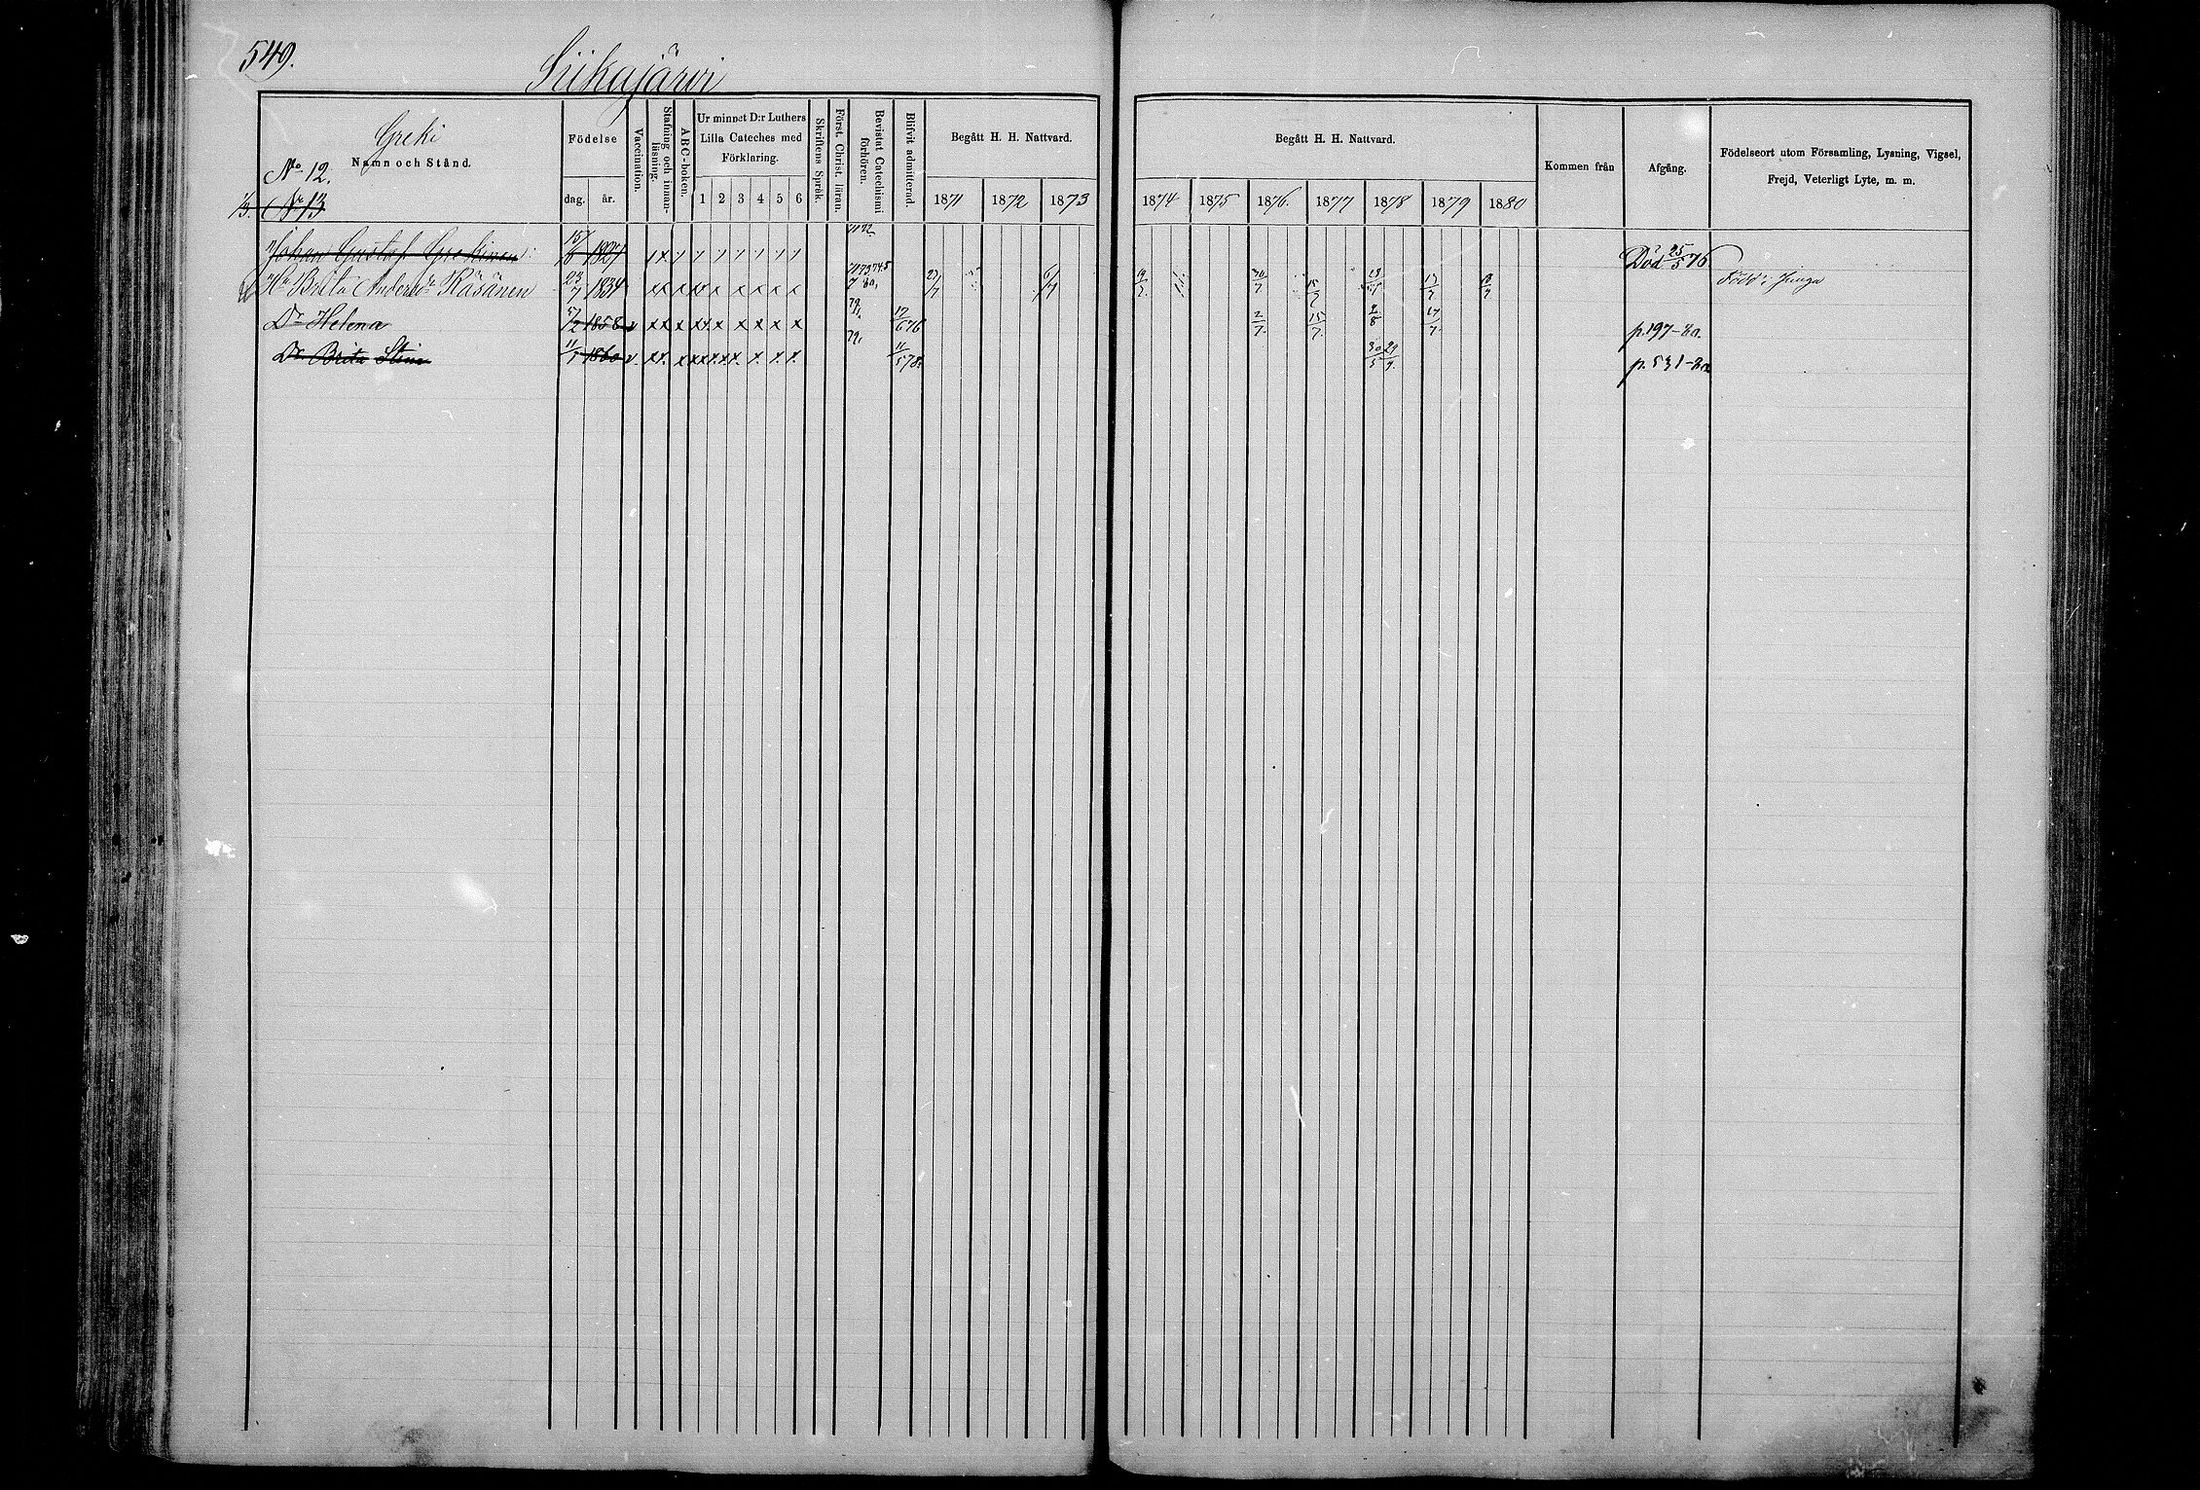 549.
Siikajärvi
Greki
Namn och Stånd.
No 12.
13. No 13
Födelse
dag. år.
Vaccination.
Stafning och innan-
läsning.
ABC-boken.
Ur minnet D:r Luthers
Lilla Cateches med
Förklaring.
1 2 3 4 5 6
Skriftens Språk.
Först. Christ. läran.
Bevistat Catechismi
förhören.
Blifvit admitterad
Begått H. H. Nattvard.
1871 1872 1873
Begått H. H. Nattvard.
1874 1875 1876. 1877 1878 1879 1880
Kommen från
Afgång.
Födelseort utom Församling, Lysning, Vigsel,
Frejd, Veterligt Lyte, m. m.
Johan Gustaf Grekinen 15/6 1827 Död 25/5 76
Ha Brita Andersdr Räsänen 23/7 1834 x x x x x x x x x 6/7 Född i Junga
Dr Helena 5/2 1858 v x x x x x x x x x 79. 17/6 76 2/7. 15/7. 2/8 17/7. p. 197-80.
Dr Brita Stina 11/5 1860 v. x x. x x x x x. x. x. x. 79. 11/5 78. 30/5 29/9. p. 531-80